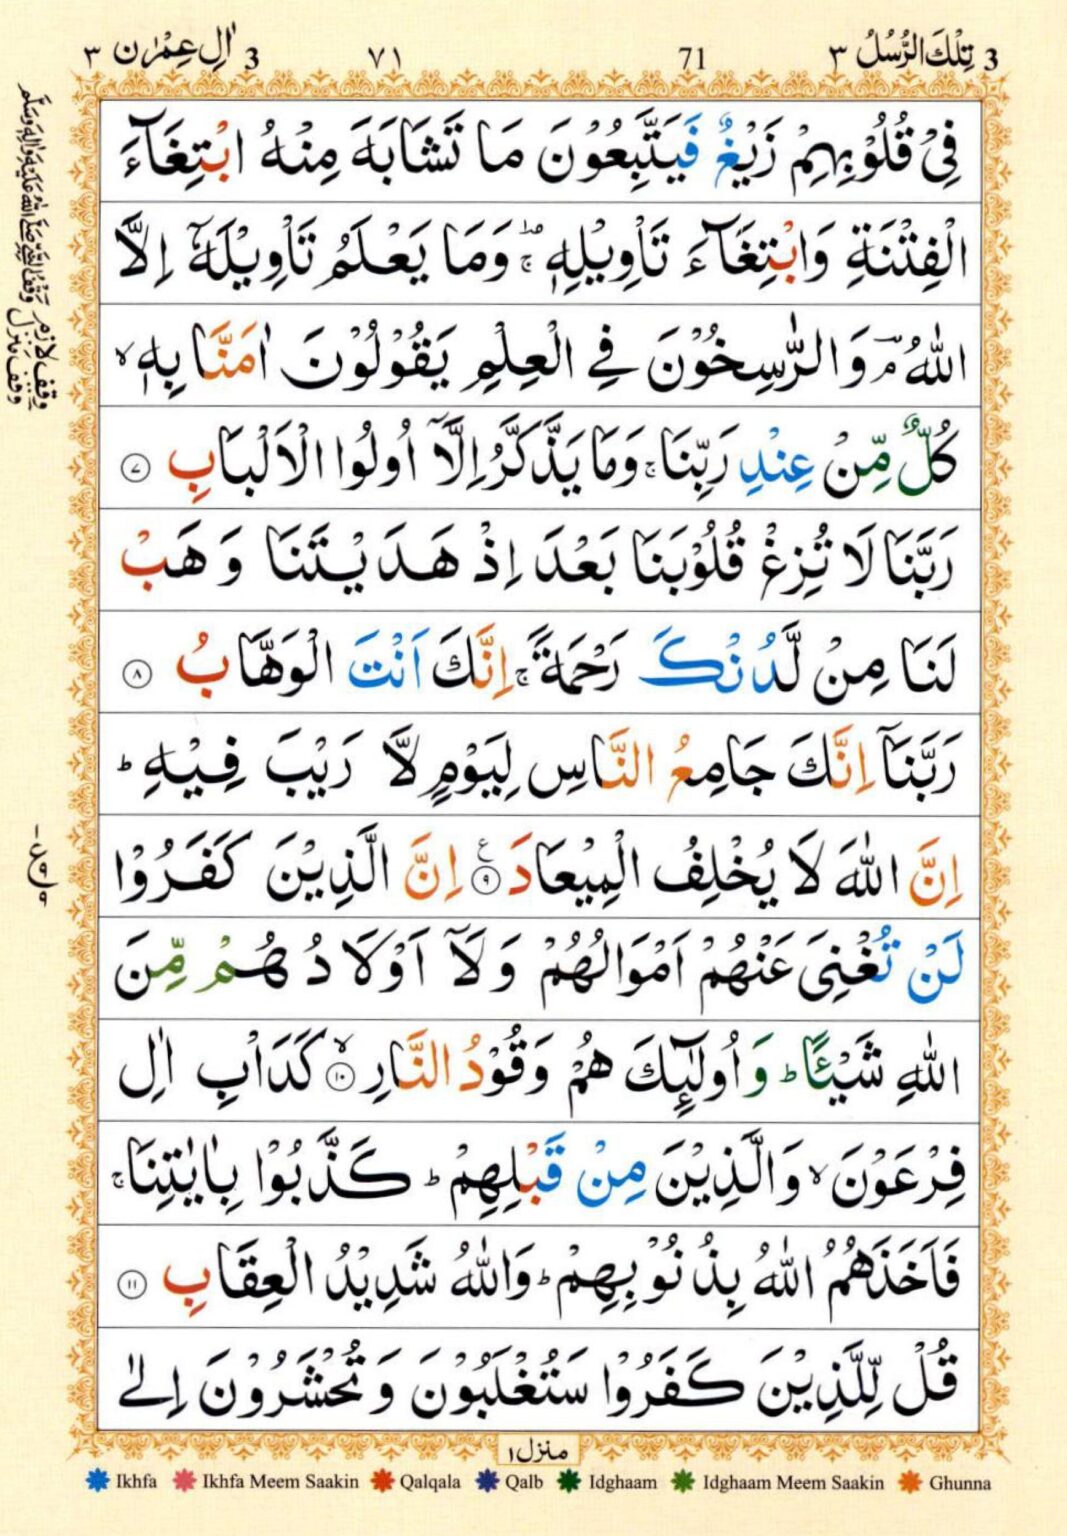 3 تِلْكَ الرُّسُلُ ٣ 71 ٧١ 3 اٰلِ عِمْرٰن ٣
فِیْ قُلُوْبِهِمْ زَیْغٌ فَیَتَّبِعُوْنَ مَا تَشَابَهَ مِنْهُ ابْتِغَآءَ
الْفِتْنَةِ وَابْتِغَآءَ تَاْوِیْلِهٖ ۚ وَمَا یَعْلَمُ تَاْوِیْلَهٗۤ اِلَّا
اللّٰهُ ؔۘ وَالرّٰسِخُوْنَ فِی الْعِلْمِ یَقُوْلُوْنَ اٰمَنَّا بِهٖ ۙ
كُلٌّ مِّنْ عِنْدِ رَبِّنَا ۚ وَمَا یَذَّكَّرُ اِلَّاۤ اُولُوا الْاَلْبَابِ ۷
رَبَّنَا لَا تُزِغْ قُلُوْبَنَا بَعْدَ اِذْ هَدَیْتَنَا وَهَبْ
لَنَا مِنْ لَّدُنْكَ رَحْمَةً ۚ اِنَّكَ اَنْتَ الْوَهَّابُ ۸
رَبَّنَاۤ اِنَّكَ جَامِعُ النَّاسِ لِیَوْمٍ لَّا رَیْبَ فِیْهِ ؕ
اِنَّ اللّٰهَ لَا یُخْلِفُ الْمِیْعَادَ ۹ ع اِنَّ الَّذِیْنَ كَفَرُوْا
لَنْ تُغْنِیَ عَنْهُمْ اَمْوَالُهُمْ وَلَاۤ اَوْلَادُهُمْ مِّنَ
اللّٰهِ شَیْـًٔا ؕ وَاُولٰٓىِٕكَ هُمْ وَقُوْدُ النَّارِ ۱۰ ۙ كَدَاْبِ اٰلِ
فِرْعَوْنَ ۙ وَالَّذِیْنَ مِنْ قَبْلِهِمْ ؕ كَذَّبُوْا بِاٰیٰتِنَا ۚ
فَاَخَذَهُمُ اللّٰهُ بِذُنُوْبِهِمْ ؕ وَاللّٰهُ شَدِیْدُ الْعِقَابِ ۱۱
قُلْ لِّلَّذِیْنَ كَفَرُوْا سَتُغْلَبُوْنَ وَتُحْشَرُوْنَ اِلٰی
منزل ۱
Ikhfa Ikhfa Meem Saakin Qalqala Qalb Idghaam Idghaam Meem Saakin Ghunna
وقف لازم
وقف منزل